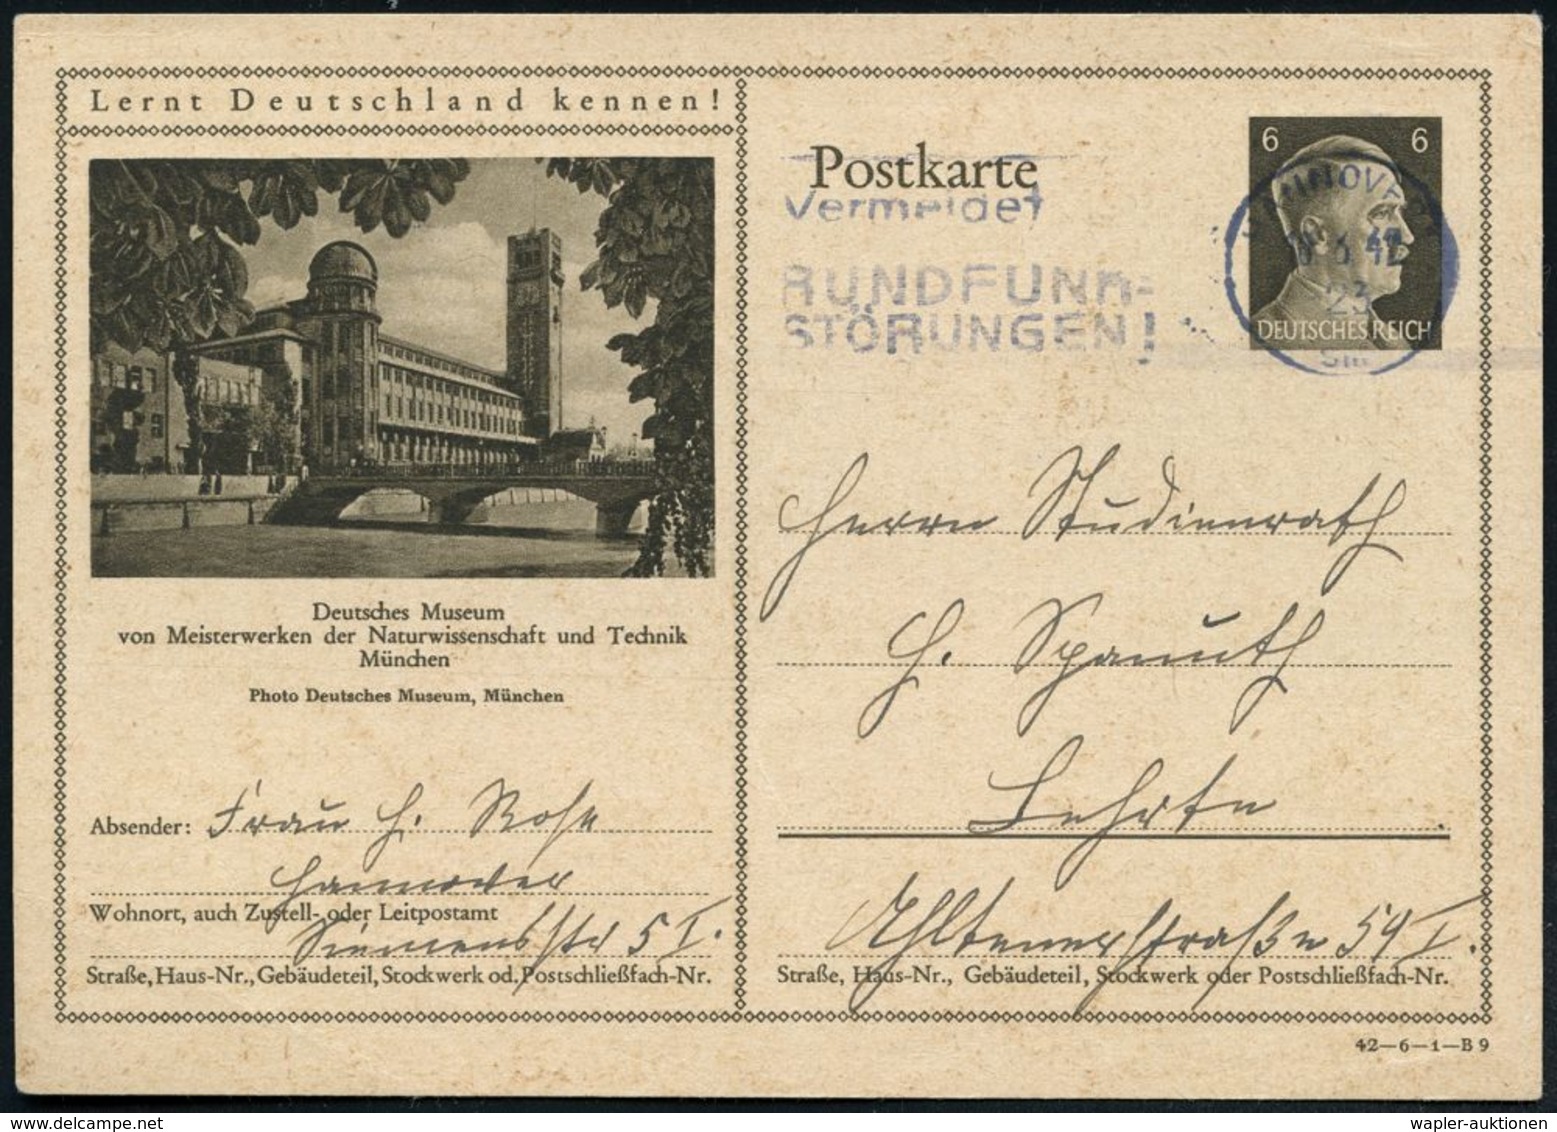 Lernt Deutschland kennen!
Deutsches Museum
von Meisterwerken der Naturwissenschaft und Technik
München
Photo Deutsches Museum, München
Absender: Frau H. Rose
Hannover
Wohnort, auch Zustell- oder Leitpostamt
Siemensstr 5 I.
Straße, Haus-Nr., Gebäudeteil, Stockwerk od. Postschließfach-Nr.
Postkarte
Vermeidet
RUNDFUNK=
STÖRUNGEN!
6 6
HANNOVER
6 42
23
DEUTSCHES REICH
Herrn Studienrath
H. Spanuth
Lehrte.
Ahltenerstraße 59 I.
Straße, Haus-Nr., Gebäudeteil, Stockwerk oder Postschließfach-Nr.
42—6—1—B 9
wapler-auktionen